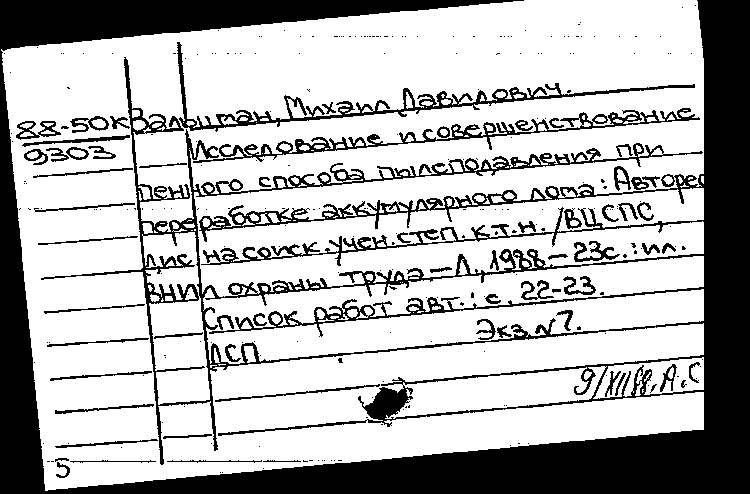 88-50К Зальцман, Михаил Давидович.
9303 Исследование и совершенствование
пенного способа пылеподавления при
переработке аккумулярного лома: Авторес
дис. на соиск. учен. степ. к.т.н. /ВЦСПС,
ВНИИ охраны труда.—Л., 1988.—23с.: ил.
Список работ авт.: с. 22-23.
ДСП Экз. №7.
9/XII88. А.С
5